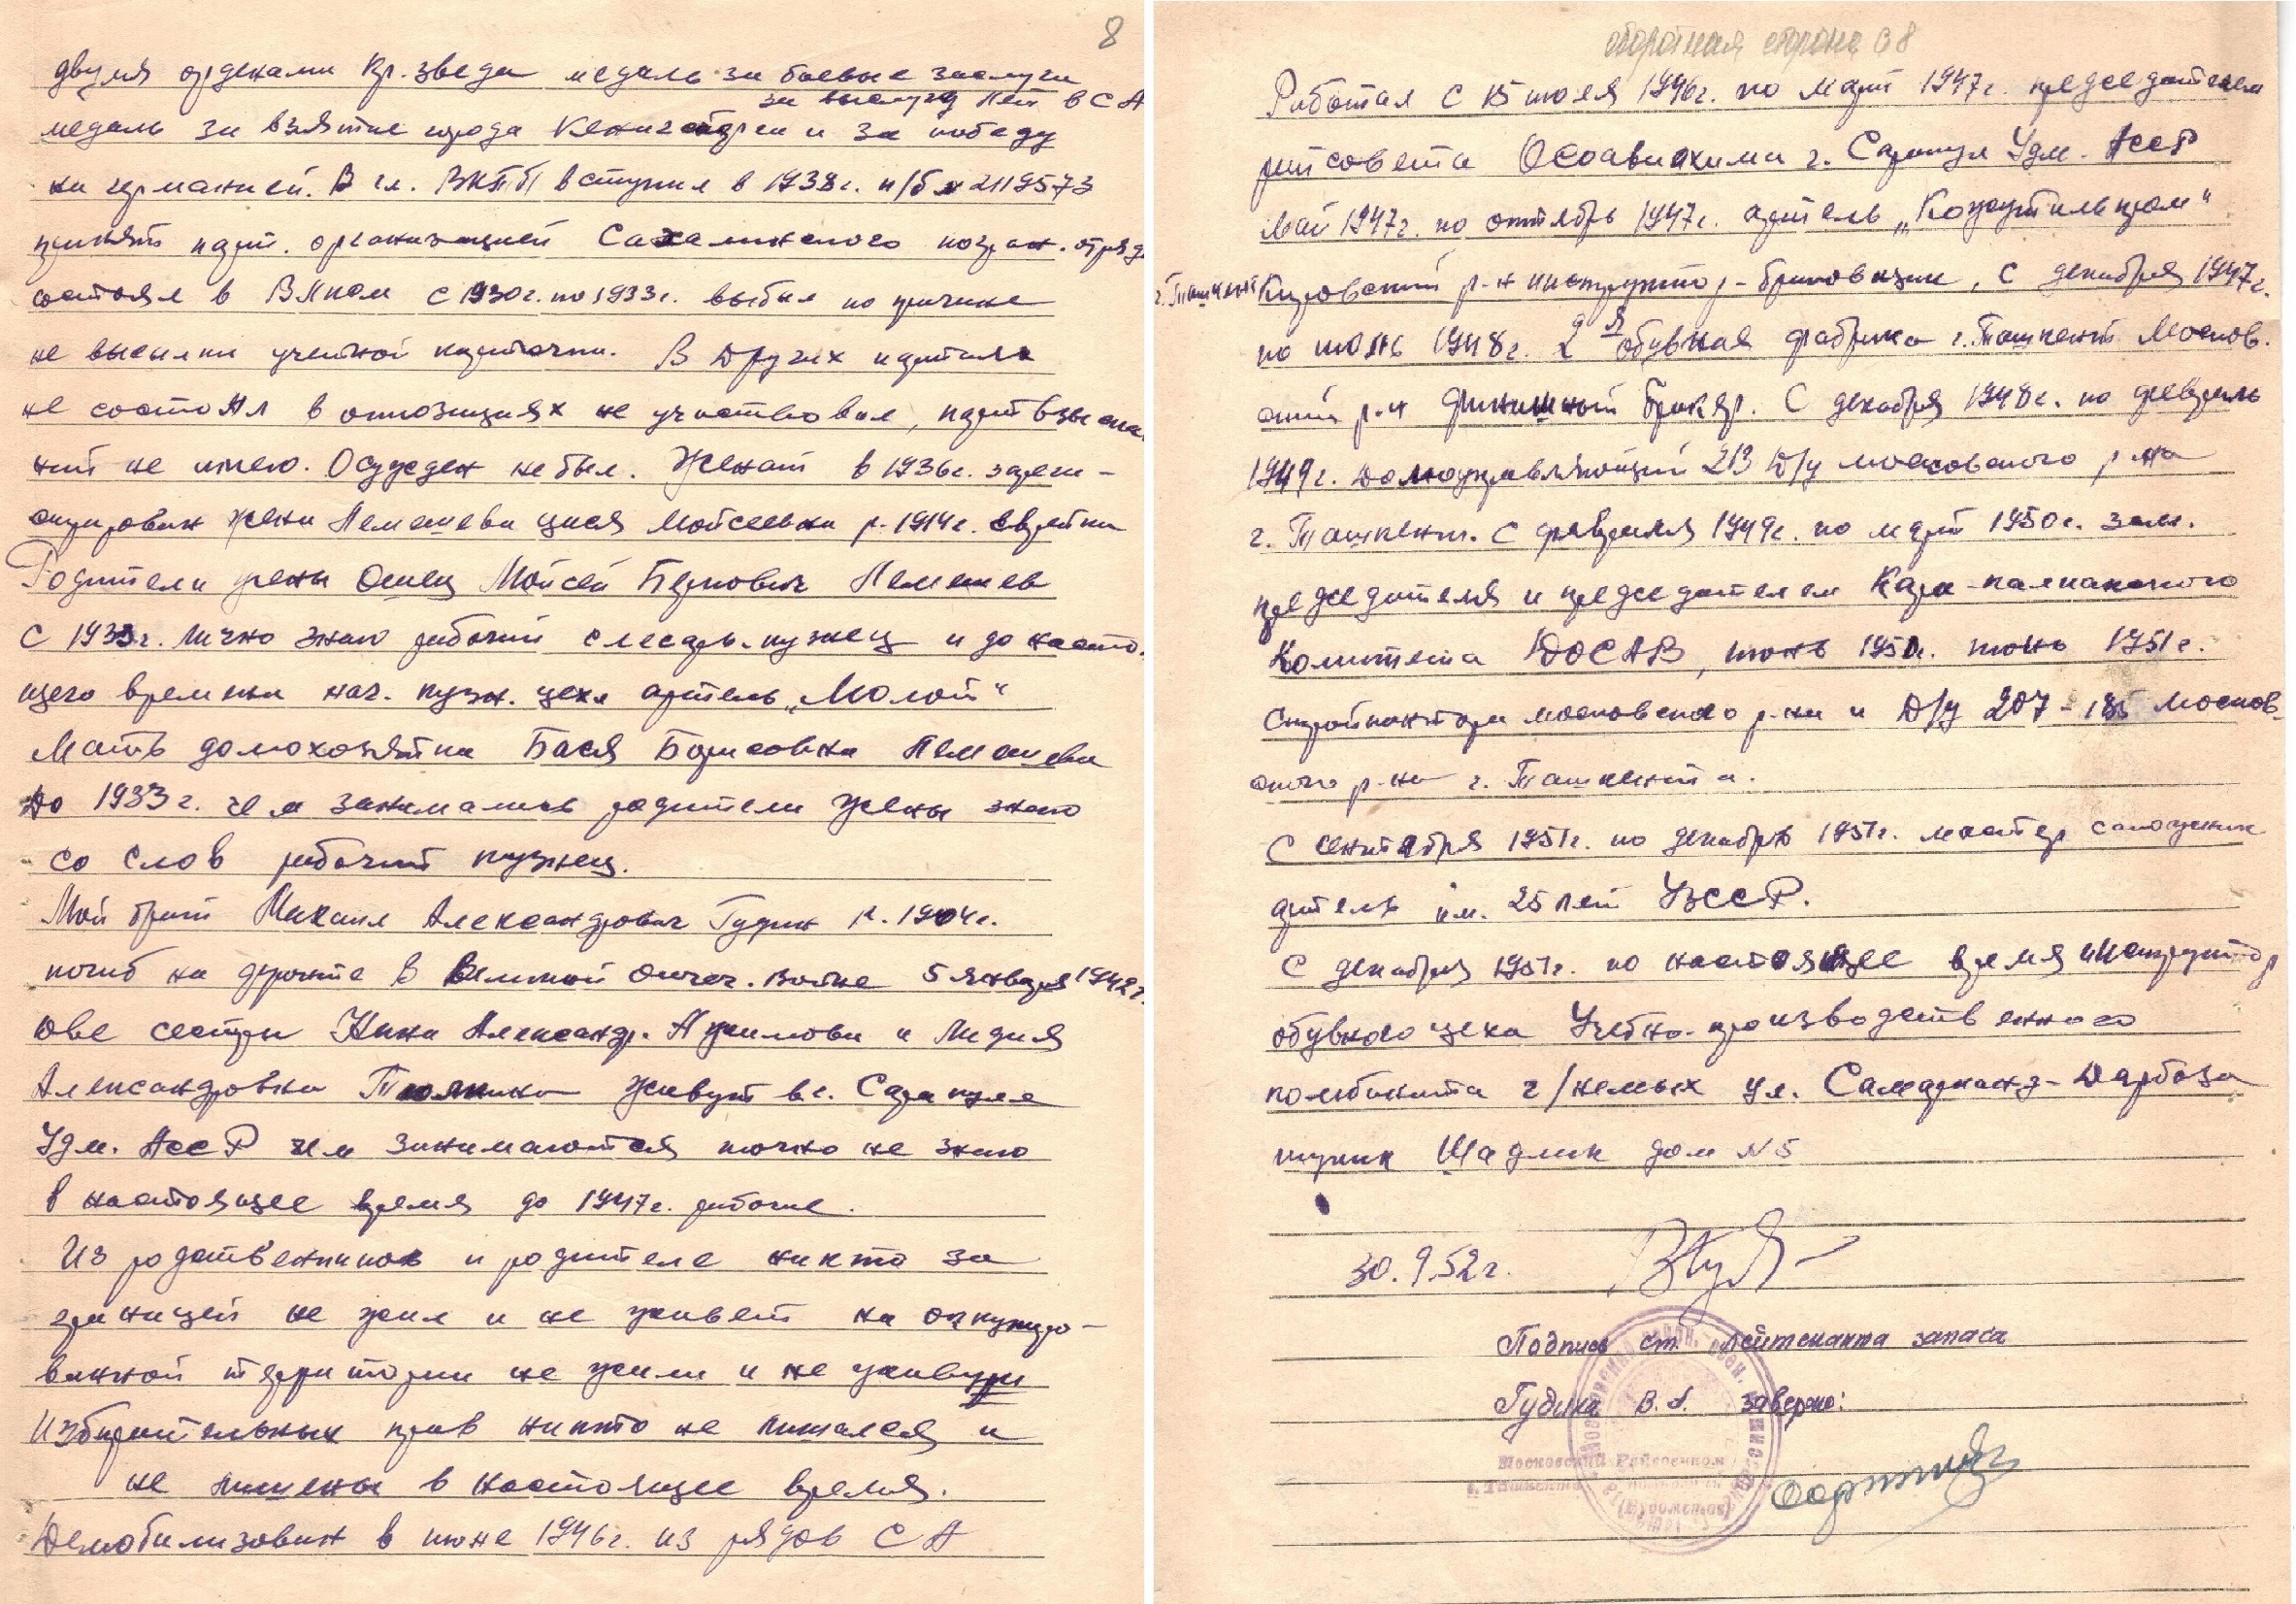 8
двумя орденами Кр. звезда медаль за боевые заслуги
за выслугу лет в СА
медаль за взятие города Кенигсберга и за победу
на германией. В чл. ВКПб вступил в 1938г. п/б № 2119573
принят парт. организацией Сахалинского погран. отряда
состоял в ВЛКСМ с 1930г. по 1933г. выбыл по причине
не высылки учетной карточки. В других партиях
не состоял в оппозициях не участвовал, партвзыска
ний не имею. Осужден не был. Женат в 1936г. зареги-
стрирован жена Мойсеевна р. 1914г. еврейка
Родители жены Отец Мойсей Беркович
С 1933г. лично знаю рабочий слесарь-кузнец и до насто.
щего времени нач. кузн. цеха артель „Молот“
Мать домохозяйка Бася Борисовна
до 1933г. чем занимались родители жены знаю
со слов рабочий кузнец.
Мой брат Михаил Александрович Гудин р. 1904г.
погиб на фронте в Великой Отеч. войне 5 января 1942г.
две сестры Нина Александр. Акимова и Лидия
Александровна живут в г. Сарапуле
Удм. АССР чем занимаются точно не знаю
в настоящее время до 1947г. рабочие.
Из родственников и родителе никто за
границей не жил и не живет на оккупиро-
ванной территории не жили и не живут
избирательных прав никто не лишался и
не лишены в настоящее время.
Демобилизован в июне 1946г. из рядов СА
оборотная сторона 08
Работал с 15 июля 1946г. по март 1947г. председателем
райсовета Осоавиахима г. Сарапул Удм. АССР
май 1947г. по октябрь 1947г. артель „Кожутильпром“
г. Ташкент Кировский р-н инструктор-браковщик, с декабря 1947г.
по июнь 1948г. 2я обувная фабрика г. Ташкент Москов.
ский р-н финишный бракер. С декабря 1948г. по февраль
1949г. домоуправляющий 213 д/у московского р-на
г. Ташкент. С февраля 1949г. по март 1950г. зам.
председателя и председателем Кара-калпакского
Комитета ДОСАВ, июнь 1950г. июнь 1951г.
Стройконтора московского р-на и Д/у 207-185 москов-
ского р-на г. Ташкента.
С сентября 1951г. по декабрь 1951г. мастер сапожник
артель им. 25 лет УзССР.
С декабря 1951г. по настоящее время инструктор
обувного цеха Учебно-производственного
комбината г/немых ул. Самарканд-Дарбаза
тупик Шадлик дом №5
30.9.52г.
Подпись ст. лейтенанта запаса
Гудина В. А. заверяю:
Московский Райвоенком
г. Ташкента